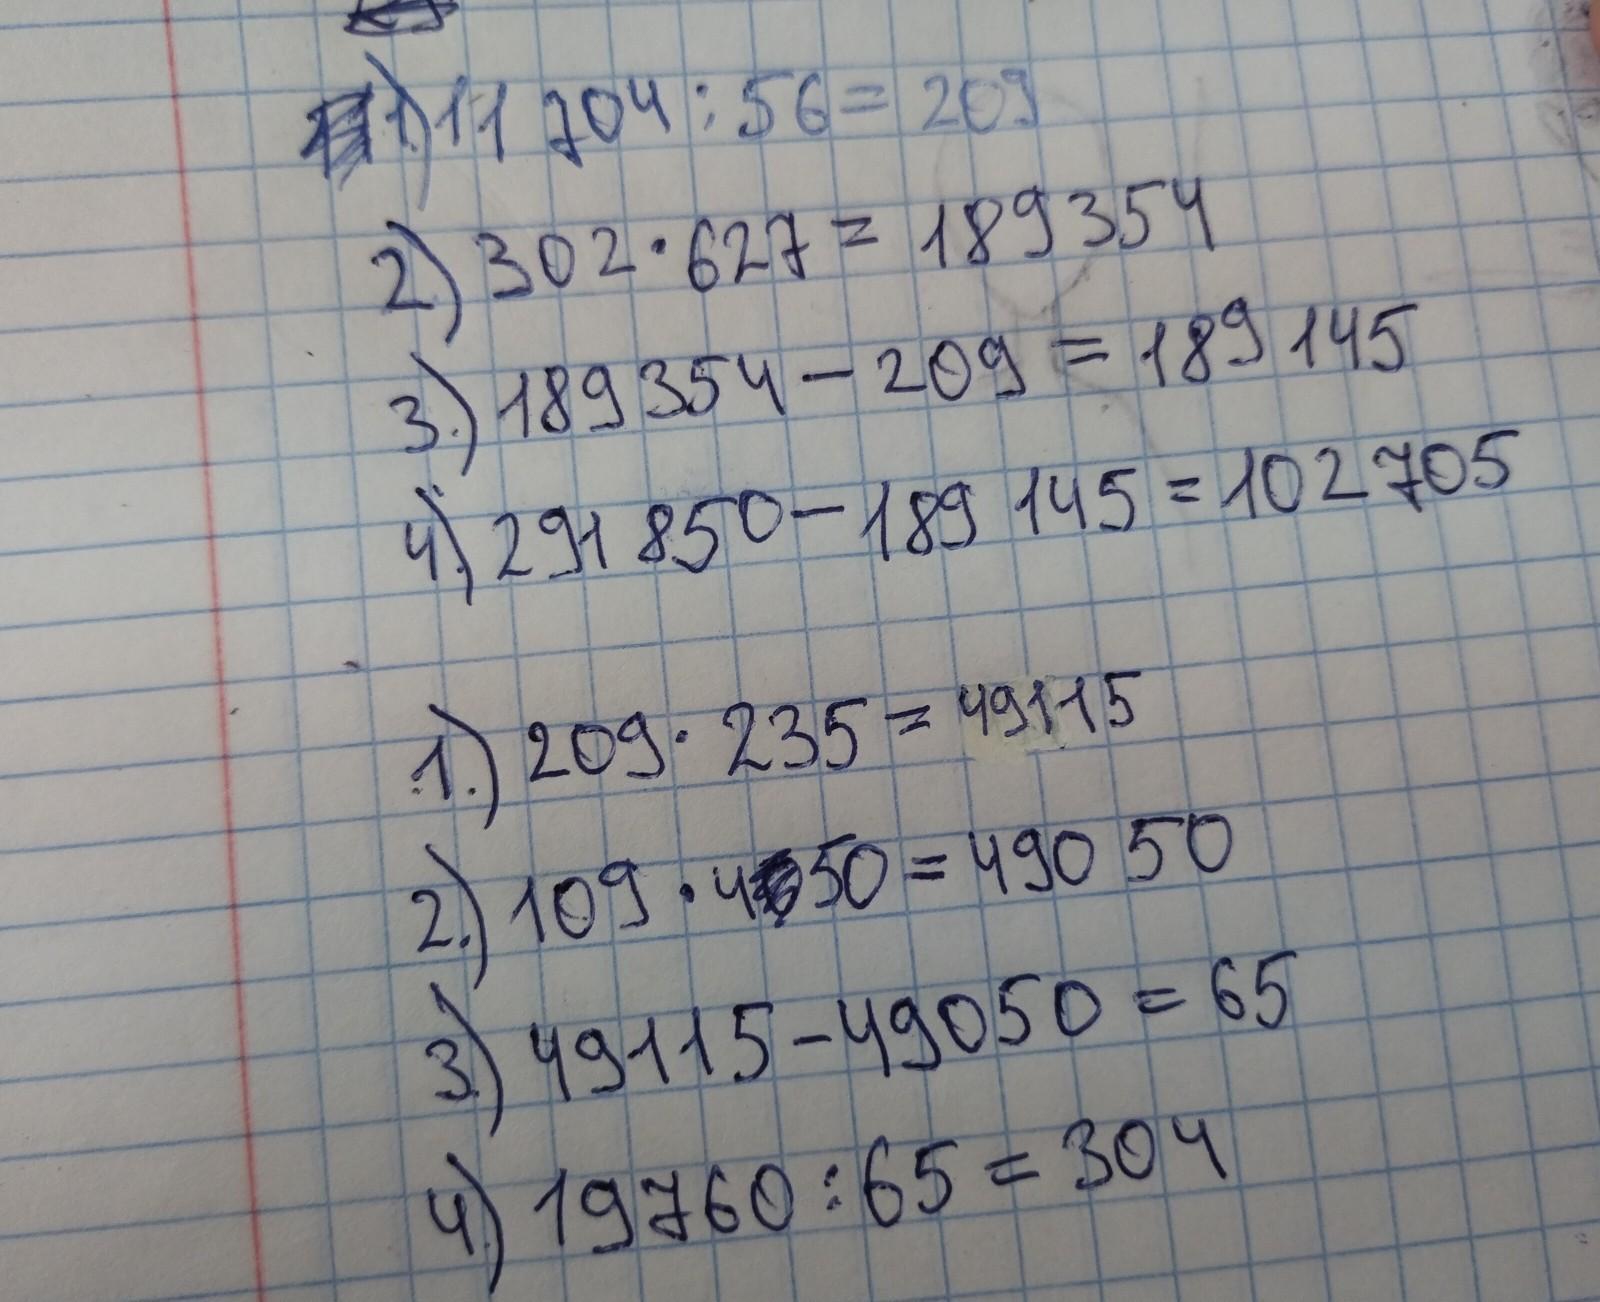 1.) 11 704 : 56 = 209
2.) 302 · 627 = 189354
3.) 189 354 - 209 = 189 145
4.) 291 850 - 189 145 = 102 705
1.) 209 · 235 = 49115
2.) 109 · 450 = 490 50
3.) 49115 - 49050 = 65
4.) 19760 : 65 = 304